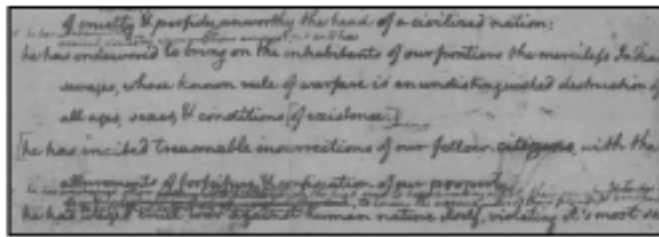 of cruelty & perfidy unworthy the head of a civilized nation:
he has endeavored to bring on the inhabitants of our frontiers the merciless Indian
savages, whose known rule of warfare is an undistinguished destruction of
all ages, sexes, & conditions [of existence.]
[he has incited treasonable insurrections of our fellow citizens, with the
allurements of forfeiture & confiscation of our property
he has waged cruel war against human nature itself, violating it's most sa